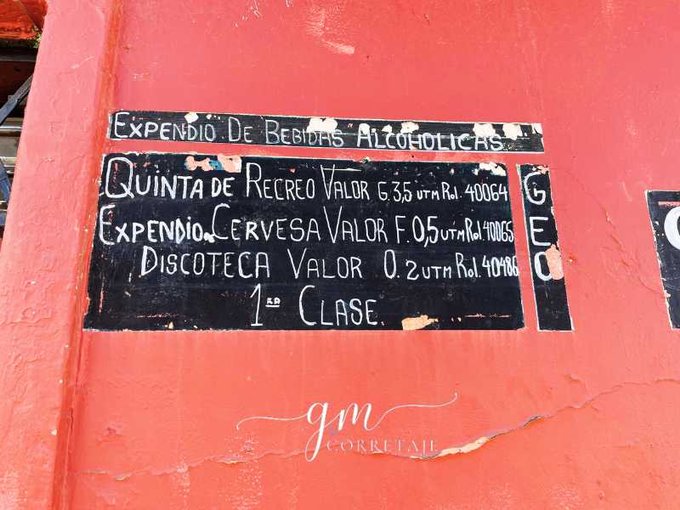 EXPENDIO DE BEBIDAS ALCOHOLICAS
QUINTA DE RECREO VALOR G. 3,5 UTM Rol. 40064
EXPENDIO CERVESA VALOR F. 0,5 UTM Rol. 40065
DISCOTECA VALOR O. 2 UTM Rol. 40486
1RA CLASE.
G
E
O
gm
CORRETAJE